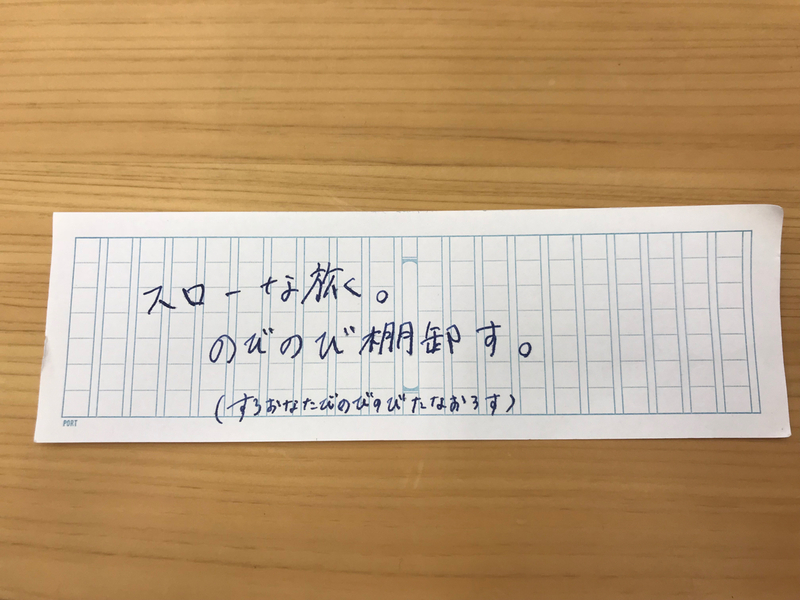 スローな旅。
のびのび棚卸す。
(すろおなたびのびのびたなおろす)
PORT